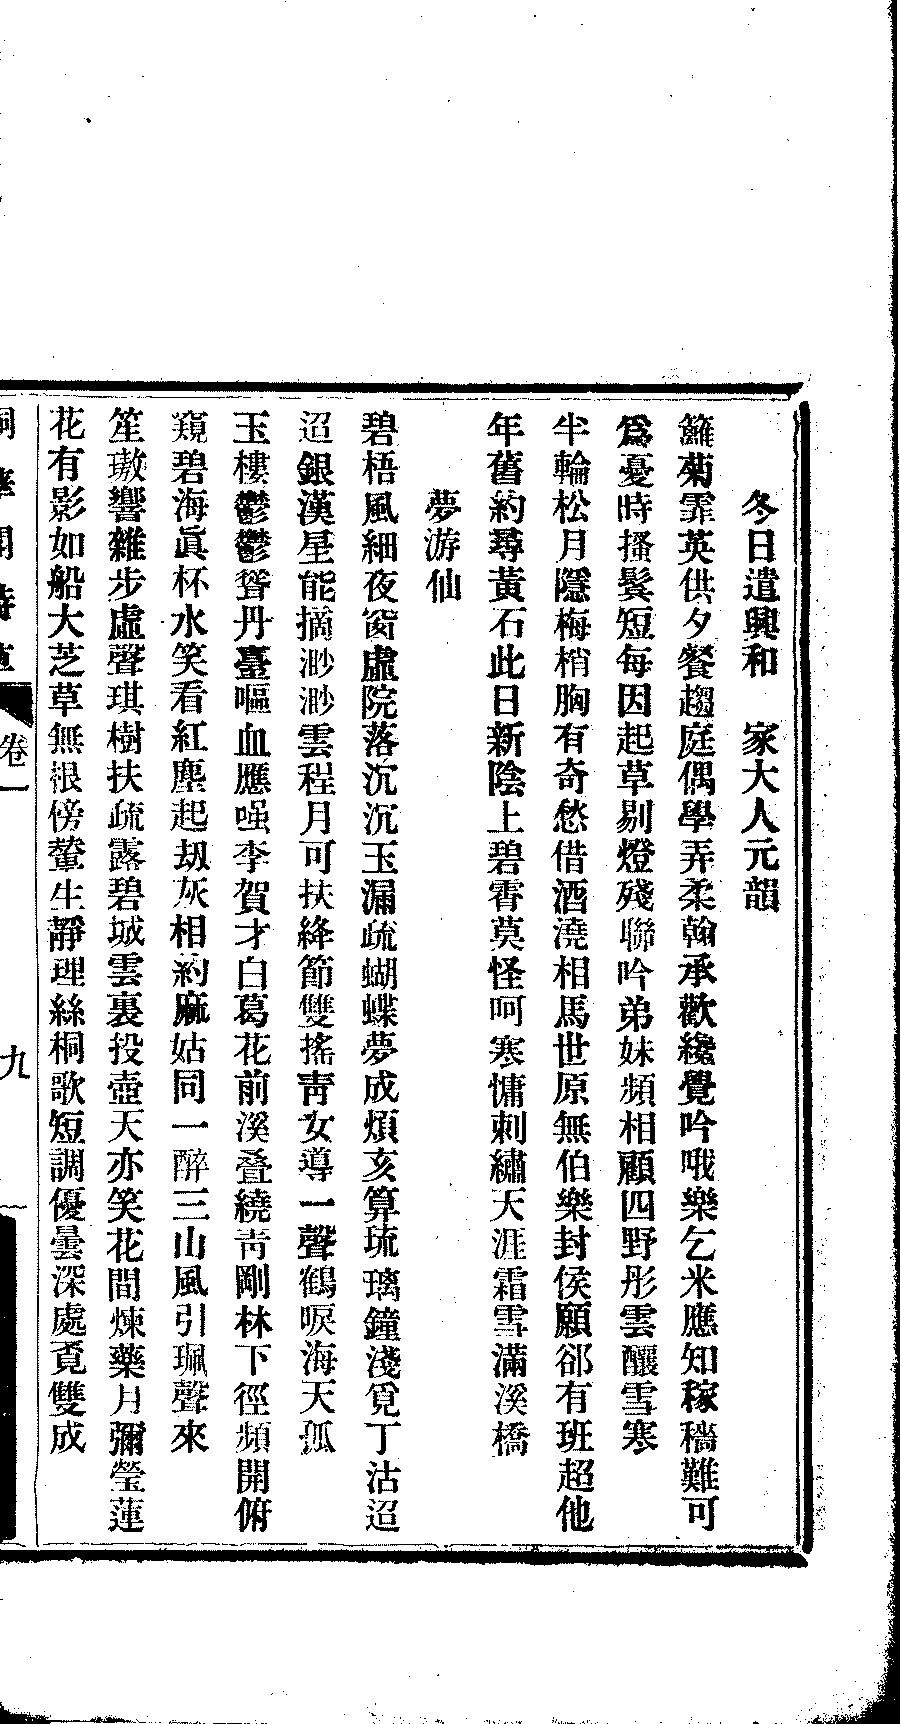 冬日遣興和　家大人元韻
籬菊霏英供夕餐趨庭偶學弄柔翰承歡纔覺吟哦樂乞米應知稼穡難可
爲憂時搔鬓短每因起草剔燈殘聯吟弟妹頻相顧四野彤雲釀雪寒
半輪松月隱梅梢胸有奇愁借酒澆相馬世原無伯樂封侯願郤有班超他
年舊約尋黃石此日新陰上碧霄莫怪呵寒慵刺繡天涯霜雪滿溪橋
夢游仙
碧梧風細夜窗虛院落沉沉玉漏疏蝴蝶夢成煩亥算琉璃鐘淺覓丁沽迢
迢銀漢星能摘渺渺雲程月可扶絳節雙搖靑女導一聲鶴唳海天孤
玉樓鬱鬱聳丹臺嘔血應强李賀才白葛花前溪叠繞靑剛林下徑頻開俯
窺碧海眞杯水笑看紅塵起刼灰相約麻姑同一醉三山風引珮聲來
笙璈響雜步虛聲琪樹扶疏露碧城雲裏投壺天亦笑花間煉藥月彌瑩蓮
花有影如船大芝草無根傍輦生靜理絲桐歌短調優曇深處覔雙成
卷一
九